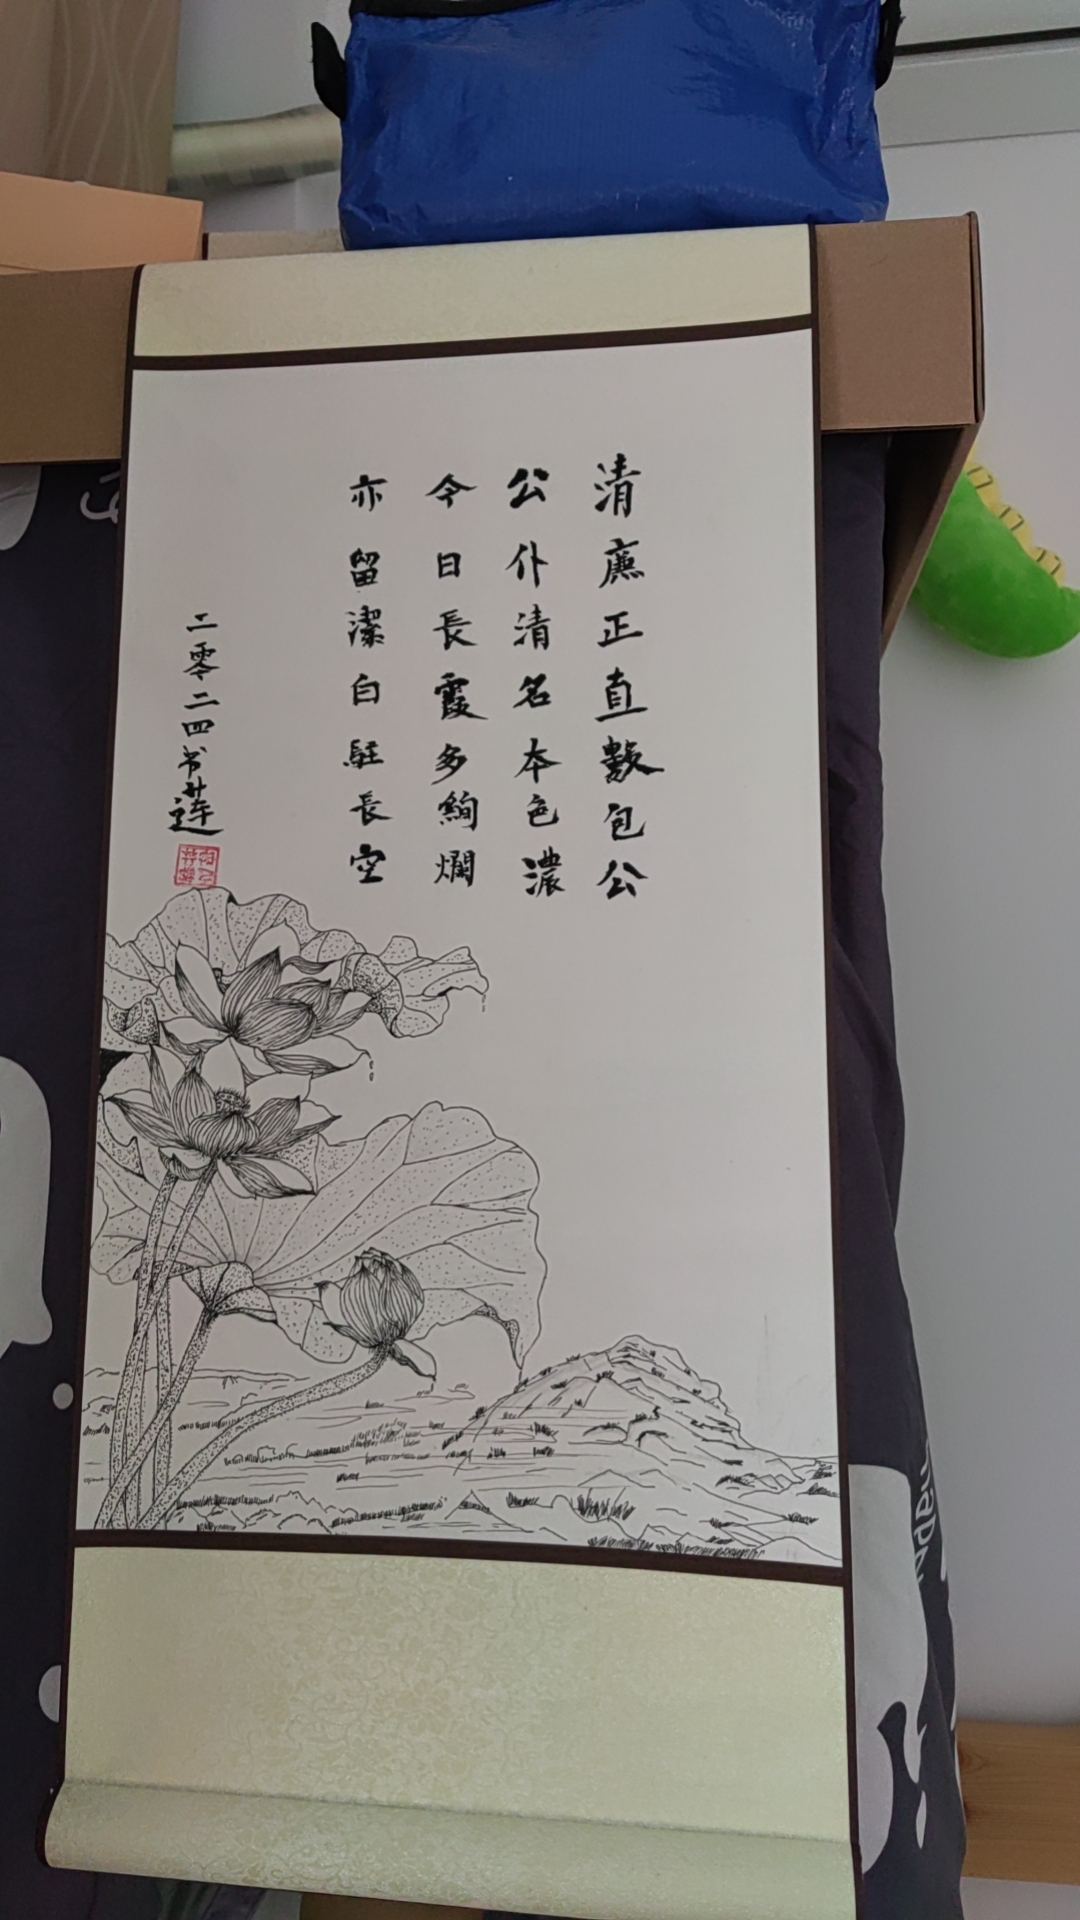 清廉正直數包公
公仆清名本色濃
今日長霞多絢爛
亦留潔白駐長空
二零二四书莲